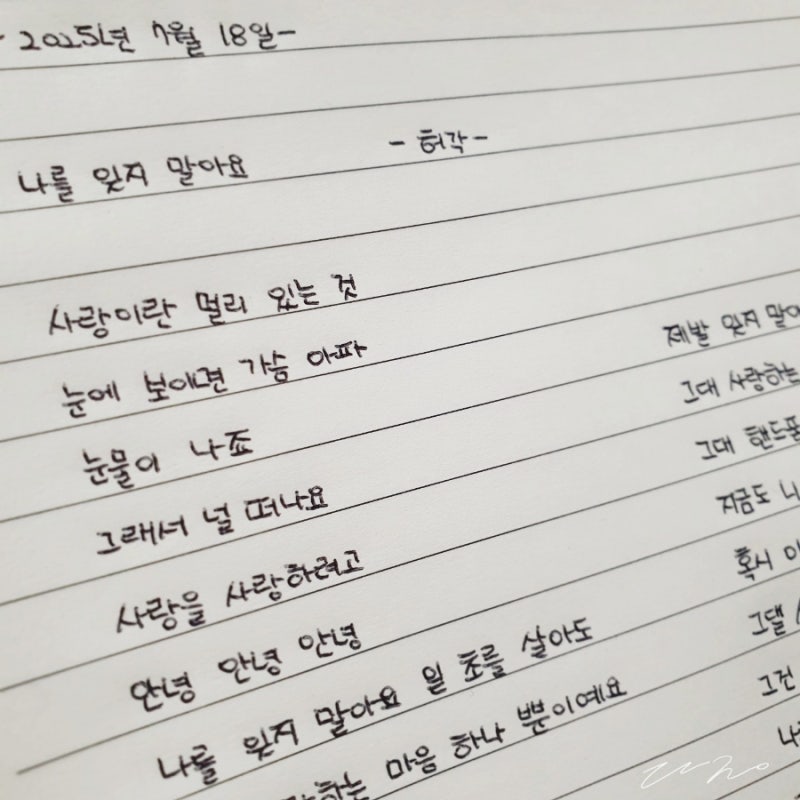 - 2025년 7월 18일 -
나를 잊지 말아요 - 허각 -
사랑이란 멀리 있는 것
눈에 보이면 가슴 아파
눈물이 나죠
그래서 널 떠나요
사랑을 사랑하려고
안녕 안녕 안녕
나를 잊지 말아요 일 초를 살아도
하는 마음 하나 뿐이예요
제발 잊지 말아
그대 사랑하는
그대 핸드폰
지금도
혹시
그댈
그건